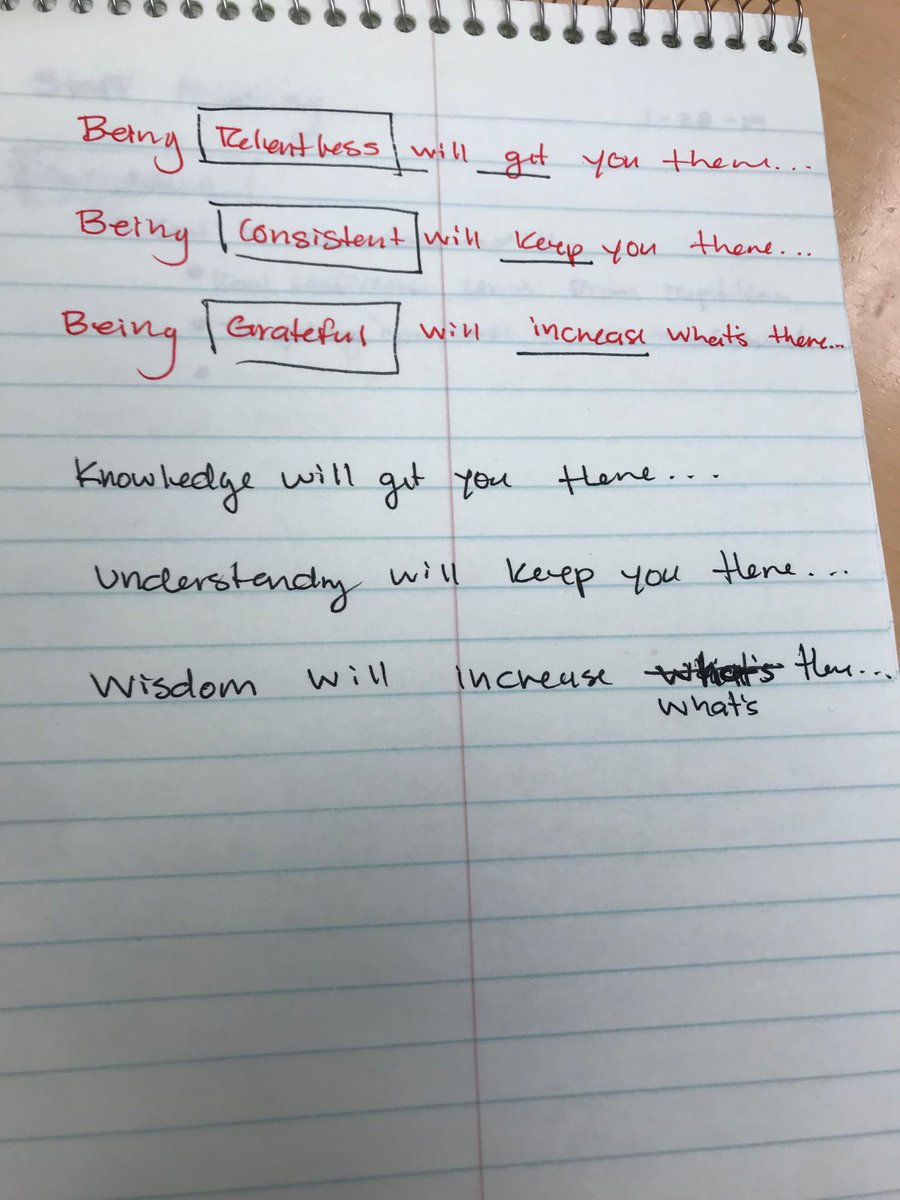 Being Relentless will get you there...
Being Consistent will keep you there...
Being Grateful will increase what's there...
Knowledge will get you there...
Understanding will keep you there...
Wisdom will increase what's there...
what's